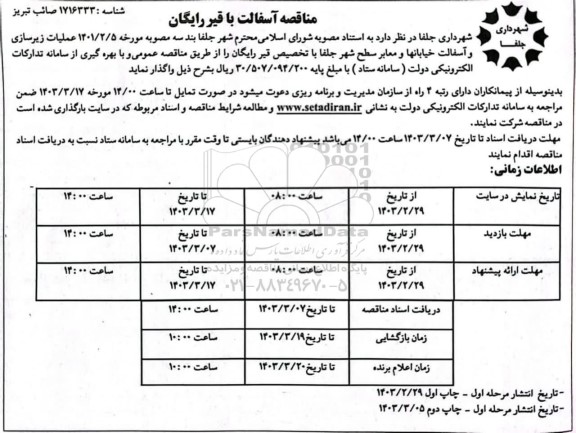 شناسه : ۱۷۱۶۳۳۳ صائب تبریز
مناقصه آسفالت با قیر رایگان
شهرداری جلفا
شهرداری جلفا در نظر دارد به استناد مصوبه شورای اسلامی محترم شهر جلفا بند سه مصوبه مورخه ۱۴۰۱/۲/۵ عملیات زیرسازی
و آسفالت خیابانها و معابر سطح شهر جلفا با تخصیص قیر رایگان را از طریق مناقصه عمومی و با بهره گیری از سامانه تدارکات
الکترونیکی دولت ( سامانه ستاد ) با مبلغ پایه ۳۰/۵۰۷/۰۹۴/۲۰۰ ریال بشرح ذیل واگذار نماید
بدینوسیله از پیمانکاران دارای رتبه ۴ راه از سازمان مدیریت و برنامه ریزی دعوت میشود در صورت تمایل تا ساعت ۱۴/۰۰ مورخه ۱۴۰۳/۳/۱۷ ضمن
مراجعه به سامانه تدارکات الکترونیکی دولت به نشانی www.setadiran.ir و مطالعه شرایط مناقصه و اسناد مربوطه که در سایت بارگذاری شده است
در مناقصه شرکت نمایند.
مهلت دریافت اسناد تا تاریخ ۱۴۰۳/۳/۰۷ ساعت ۱۴/۰۰ می باشد پیشنهاد دهندگان بایستی تا وقت مقرر با مراجعه به سامانه ستاد نسبت به دریافت اسناد
مناقصه اقدام نمایند
اطلاعات زمانی:
تاریخ نمایش در سایت از تاریخ ۱۴۰۳/۲/۲۹ ساعت ۰۸:۰۰ تا تاریخ ۱۴۰۳/۳/۱۷ ساعت ۱۴:۰۰
مهلت بازدید از تاریخ ۱۴۰۳/۲/۲۹ ساعت ۰۸:۰۰ تا تاریخ ۱۴۰۳/۳/۰۷ ساعت ۱۴:۰۰
مهلت ارائه پیشنهاد از تاریخ ۱۴۰۳/۲/۲۹ ساعت ۰۸:۰۰ تا تاریخ ۱۴۰۳/۳/۱۷ ساعت ۱۴:۰۰
دریافت اسناد مناقصه تا تاریخ ۱۴۰۳/۳/۰۷ ساعت ۱۴:۰۰
زمان بازگشایی تا تاریخ ۱۴۰۳/۳/۱۹ ساعت ۱۰:۰۰
زمان اعلام برنده تا تاریخ ۱۴۰۳/۳/۲۰ ساعت ۱۰:۰۰
-تاریخ انتشار مرحله اول - چاپ اول ۱۴۰۳/۲/۲۹
-تاریخ انتشار مرحله اول - چاپ دوم ۱۴۰۳/۳/۰۵
ParsNamadData
۰۲۱-۸۸۳۴۹۶۷۰-۵